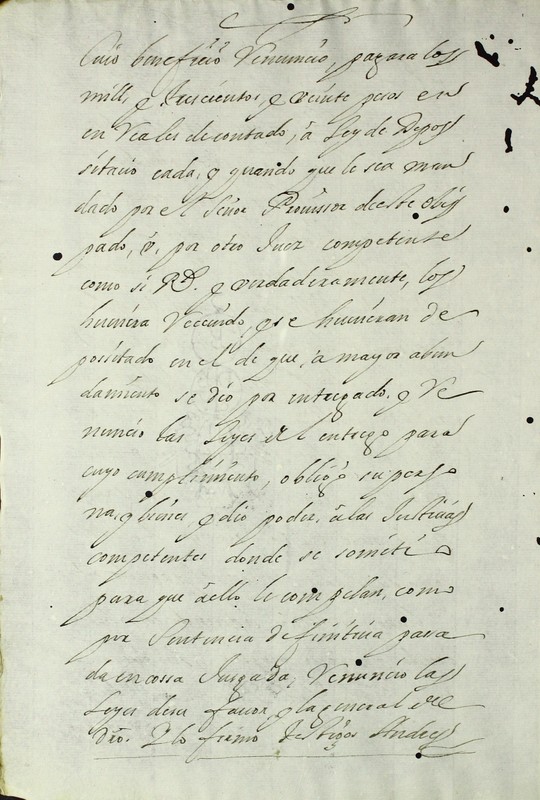 Cuio beneficio Renuncio, pagara los
mill, y trescientos, y veinte pesos en
en Reales de contado, â Ley de Depos
sitario cada, y quando que le sea man
dado por el Señor Provissor de este Obis
pado, ô, por otro Juez competente
como si Rl. y verdaderamente, los
huviera Recevido, y se huvieran de
possitado en el de que, â mayor abun
damiento se dio por entregado, y Re
nuncio las Leyes del entrego para
cuyo cumplimiento, obligo su perso
na, y bienes y dio poder, â las Justicias
competentes donde se sometio
para que âello le compelan, como
por Sentencia difinitiva passa
da en cossa Jusgada, Renuncio las
Leyes de su favor, y la general del
Dro. Y lo firmo testigos Andres